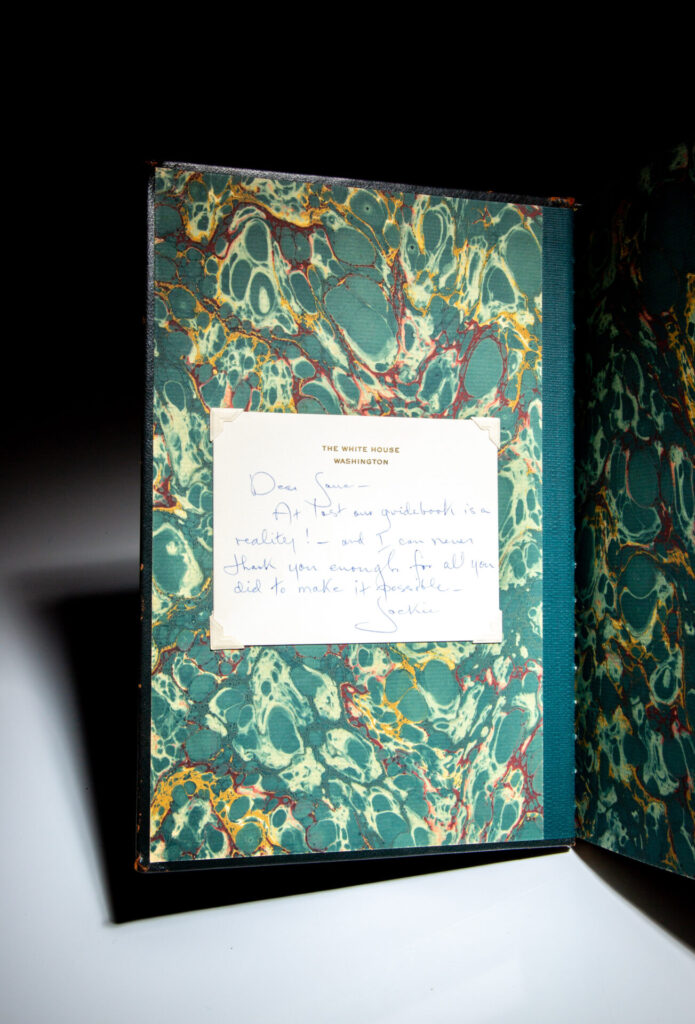 THE WHITE HOUSE
WASHINGTON
Dear Jane –
At last our guidebook is a
reality! – and I can never
thank you enough for all you
did to make it possible –
Jackie